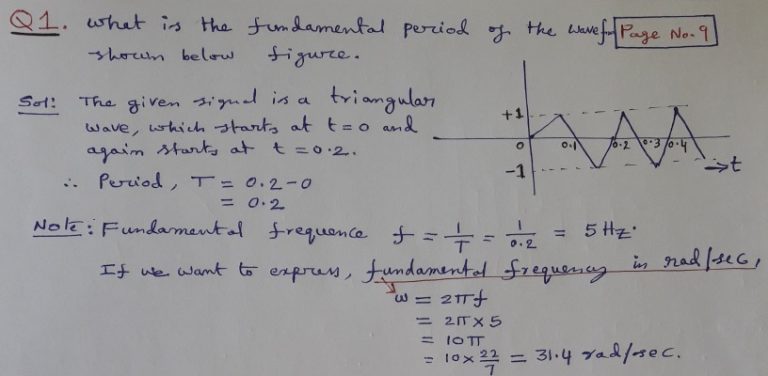 Q1. what is the fundamental period of the wavef
Page No.9
shown below figure.
Sol: The given signal is a triangular
wave, which starts at t=0 and
again starts at t=0.2.
∴ Period, T = 0.2-0
= 0.2
+1
0
-1
0.1
0.2
0.3
0.4
t
Note: Fundamental frequence f = 1/T = 1/0.2 = 5 Hz.
If we want to express, fundamental frequency in rad/sec,
ω = 2πf
= 2π×5
= 10π
= 10×22/7 = 31.4 rad/sec.